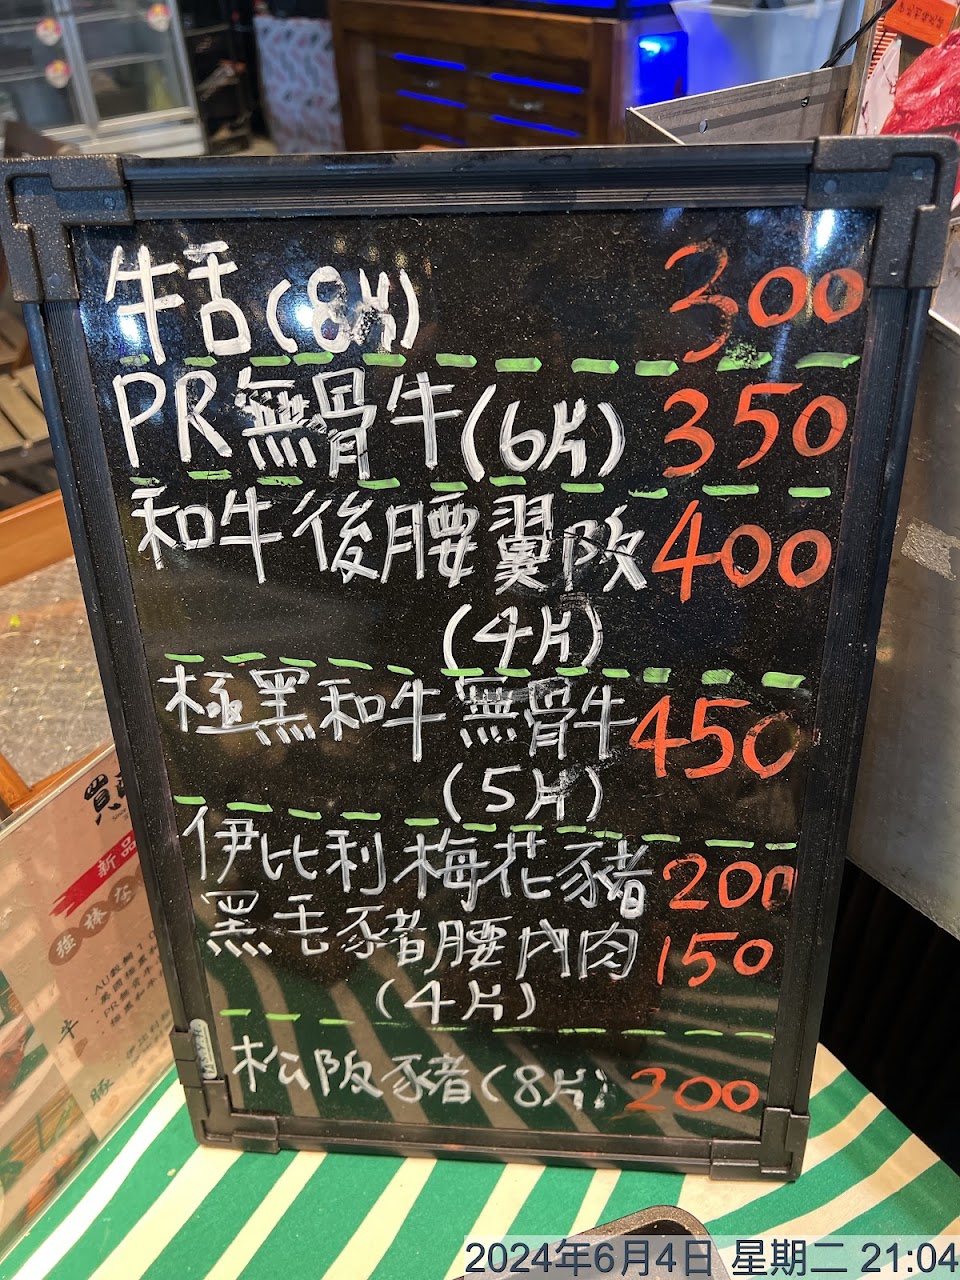 牛舌(8片) 300
PR無骨牛(6片) 350
和牛後腰翼阪 400
(4片)
極黑和牛無骨牛 450
(5片)
伊比利梅花豬 200
黑毛豬腰內肉 150
(4片)
松阪豬(8片) 200
買
新品
強棒
牛
豚
2024年6月4日 星期二 21:04